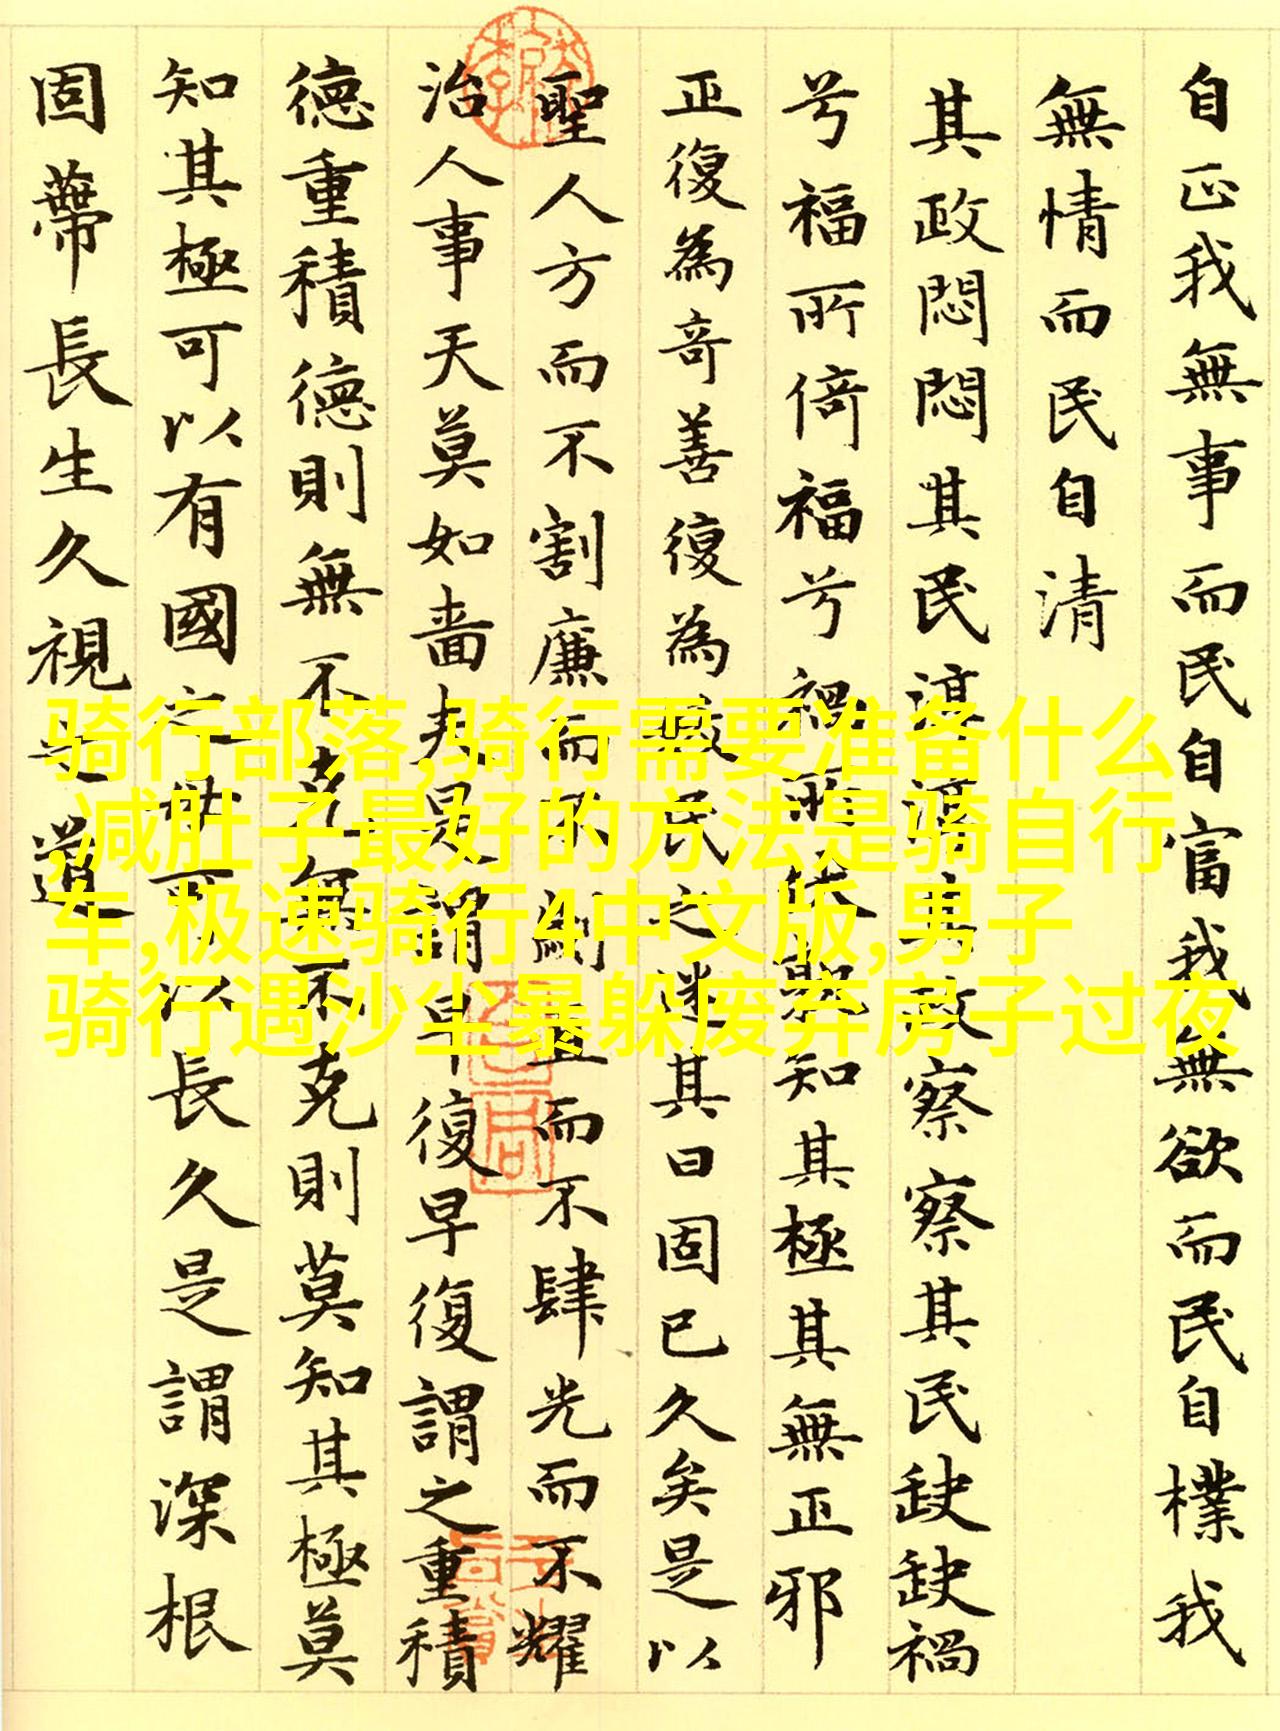 自正我無事而民自富我無欲而民自樸我
無情而民自清
其政悶悶其民淳淳其政察察其民缺缺禍
兮福所倚福兮禍所伏孰知其極其無正邪
正復為奇善復為民之迷其日固已久矣是以
聖人方而不割廉而不劌直而不肆光而不耀
治人事天莫如嗇夫是謂早復早復謂之重積
德重積德則無不克無不克則莫知其極莫
知其極可以有國之母可以長久是謂深根
固蔕長生久視之道
骑行部落,骑行需要准备什么
,减肚子最好的方法是骑自行
车,极速骑行4中文版,男子
骑行遇沙尘暴躲废弃房子过夜